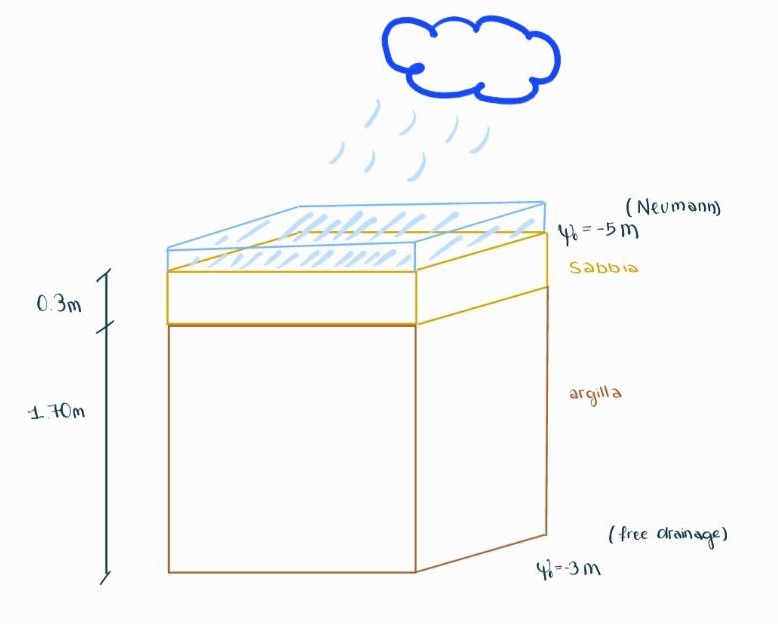 (Neumann)
ψ₀ = -5 m
Sabbia
0.3m
argilla
1.70m
(free drainage)
ψ₀=-3 m